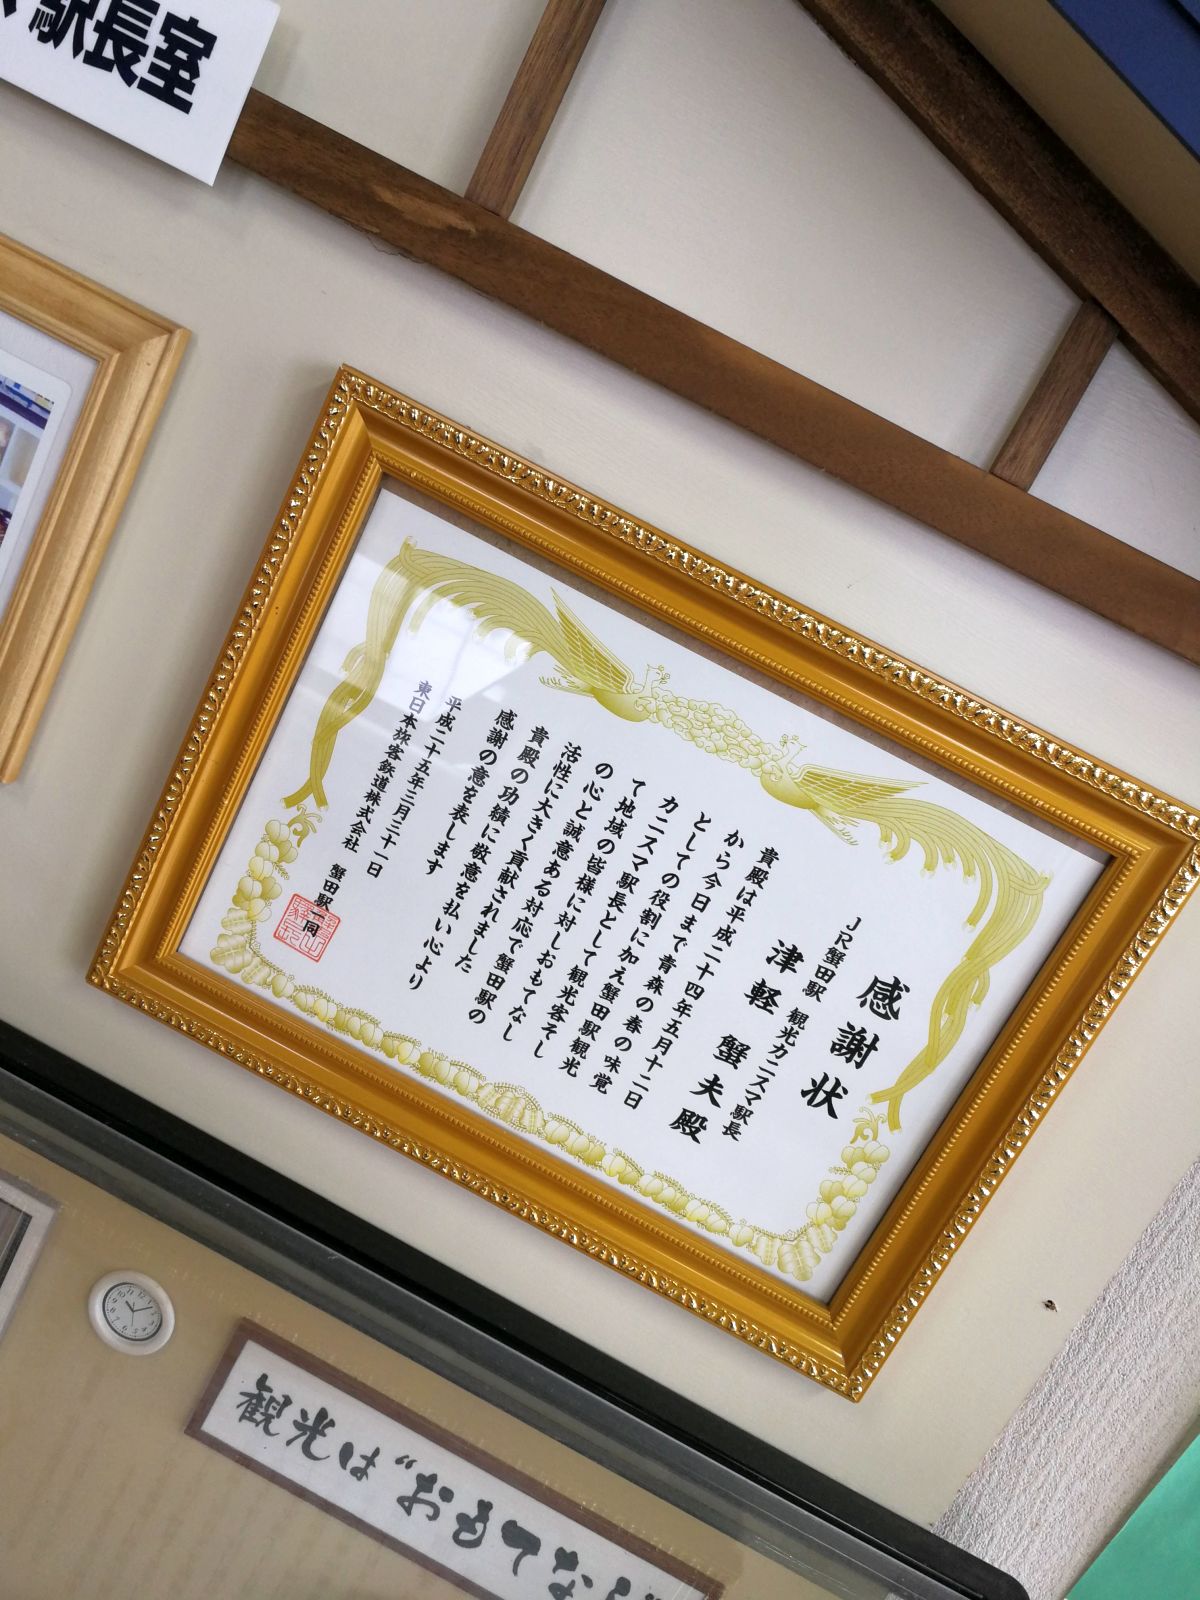 駅長室
感謝状
JR蟹田駅 観光カニスマ駅長
津軽 蟹夫殿
貴殿は平成二十四年五月十二日
から今日まで青森の春の味覚
としての役割に加え蟹田駅観光
カニスマ駅長として観光客そし
て地域の皆様に対しおもてなし
の心と誠意ある対応で蟹田駅の
活性に大きく貢献されました
貴殿の功績に敬意を払い心より
感謝の意を表します
平成二十五年三月三十一日
東日本旅客鉄道株式会社 蟹田駅一同
観光は“おもてなし